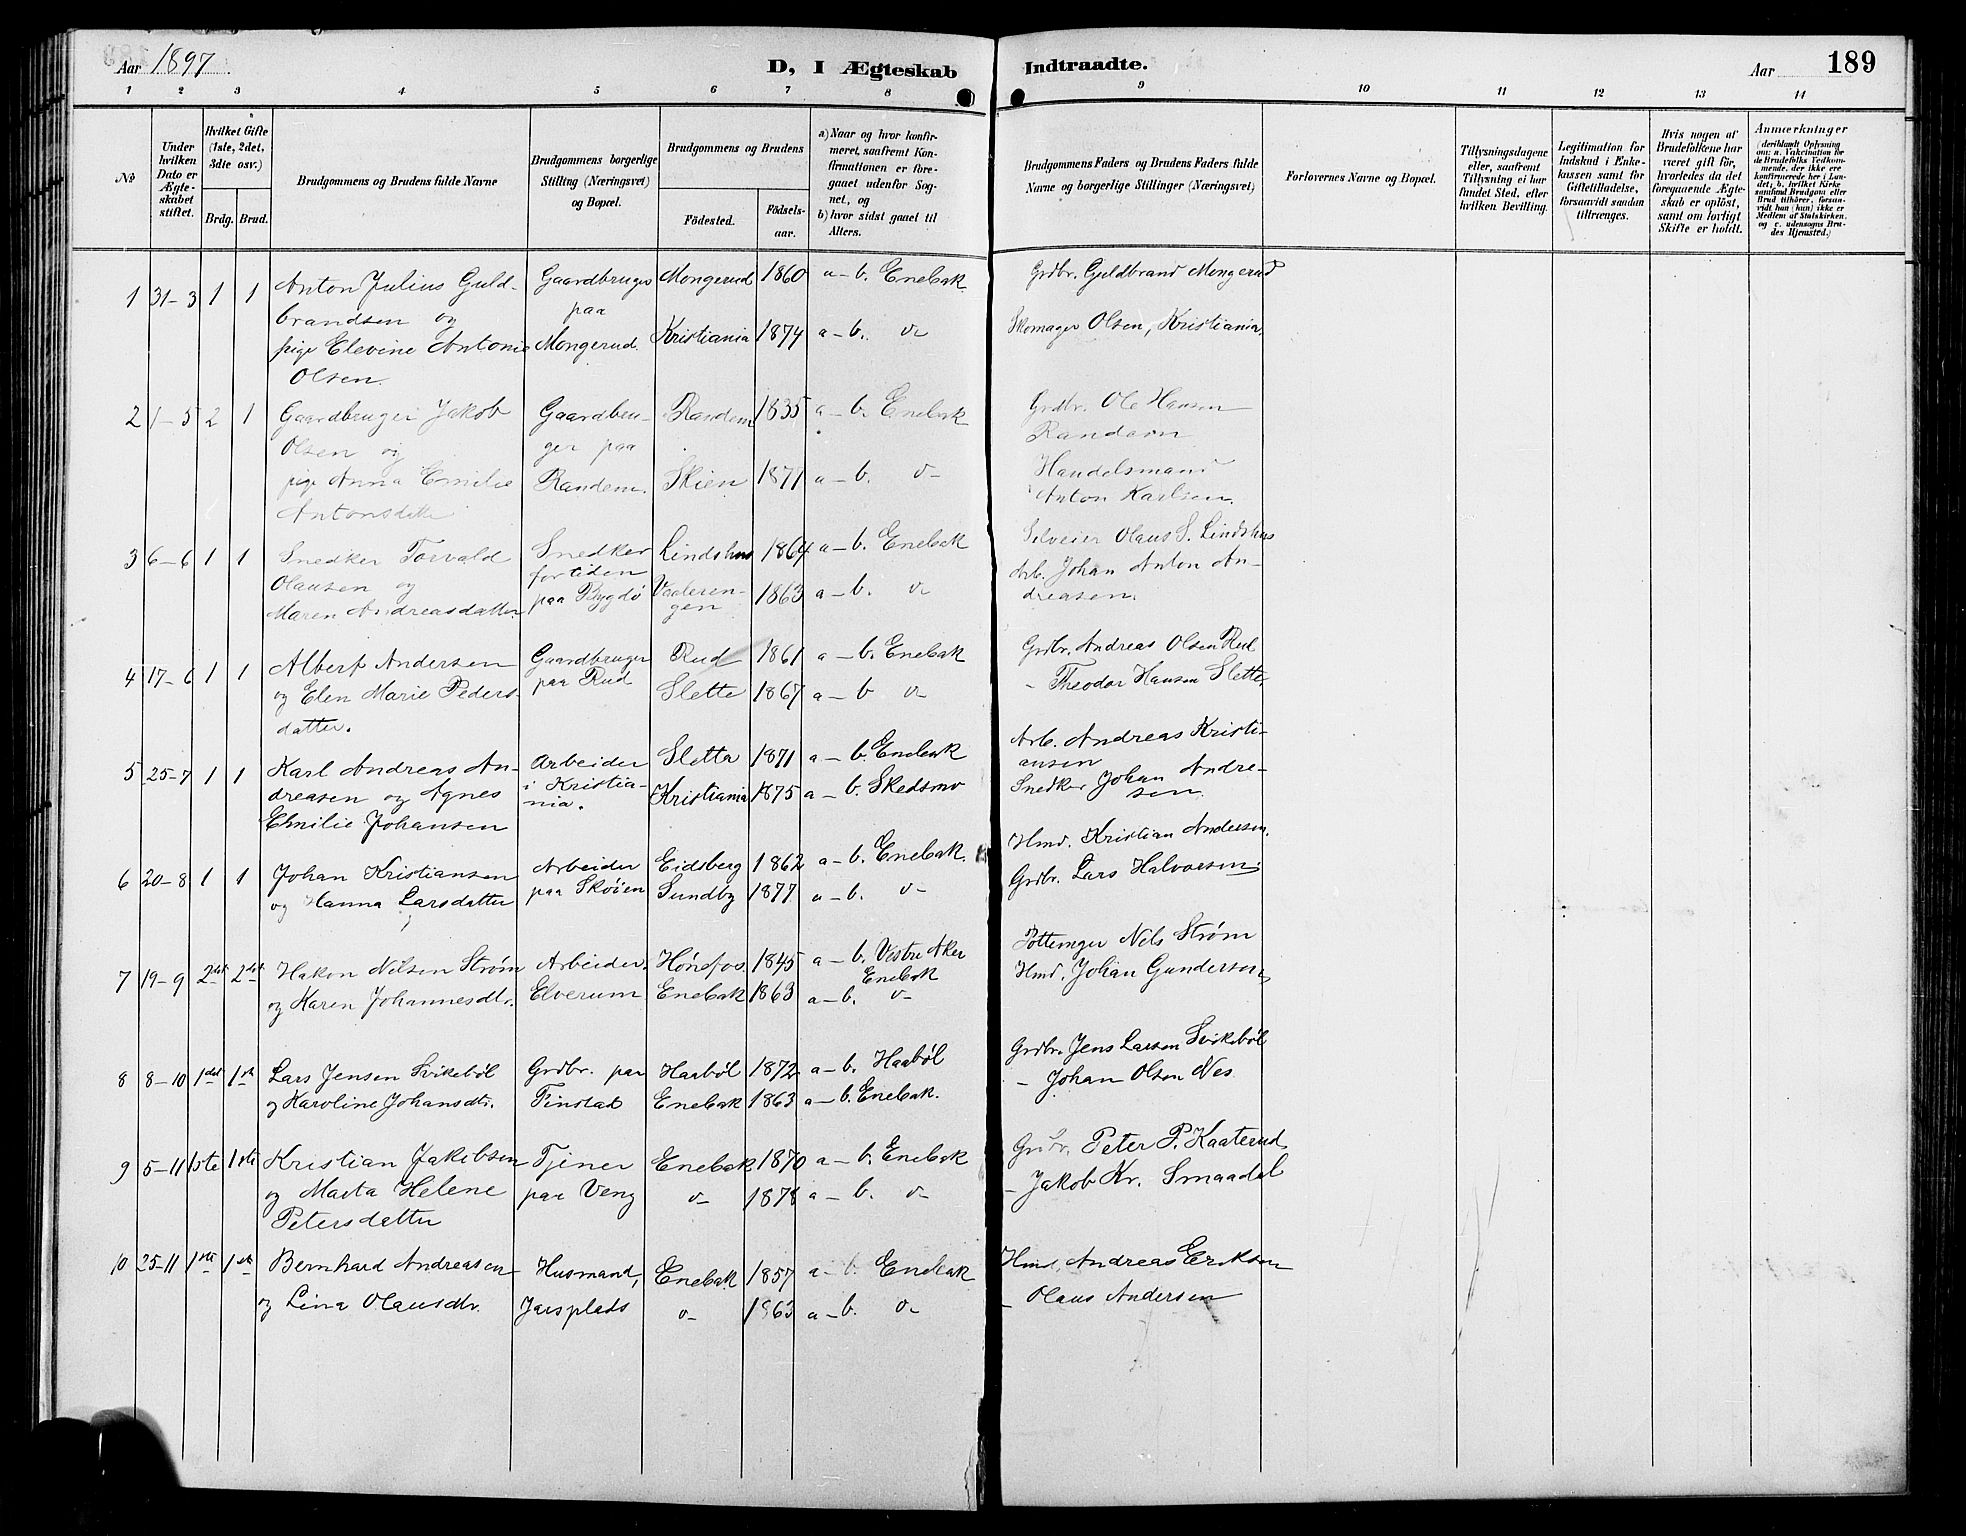 Aar 1897
D, I Ægteskab Indtraadte.
Aar 189
1 2 3 4 5 6 7 8 9 10 11 12 13 14
No
Under hvilken Dato er Ægteskabet stiftet.
Hvilket Gifte (1ste, 2det, 3dte osv.)
Brdg. Brud.
Brudgommens og Brudens fulde Navne
Brudgommens borgerlige Stilling (Næringsvei) og Bopæl.
Brudgommens og Brudens
Födested. Födsels-aar.
a) Naar og hvor konfirmeret, saafremt Konfirmationen er foregaaet udenfor Sognet, og
b) hvor sidst gaaet til Alters.
Brudgommens Faders og Brudens Faders fulde Navne og borgerlige Stillinger (Næringsvei)
Forlovernes Navne og Bopæl.
Tillysningsdagene eller, saafremt Tillysning ei har fundet Sted, efter hvilken Bevilling.
Legitimation for Indskud i Enkekassen samt for Giftetilladelse, forsaavidt saadan tiltrænges.
Hvis nogen af Brudefolkene har været gift för, hvorledes da det foregaaende Ægteskab er oplöst, samt om lovligt Skifte er holdt.
Anmerkninger (deriblandt Oplysning om: a. Vakcination for de Brudefolks Vedkommende, der ikke ere konfirmerede her i Landet; b. hvilket Kirkesamfund Brudgom eller Brud tilhörer, forsaavidt han (hun) ikke er Medlem af Statskirken, og c. udensogns Brudes Hjemsted.)
1 31-3 1 1 Anton Julius Guld- Gaardbruger Mongerud 1860 a - b. Enebak Grdbr. Guldbrand Mongerud
brandsen og paa
pige Elevine Antonie Mongerud. Kristiania 1874 a - b. v- Skomager Olsen, Kristiania.
Olsen.
2 1-5 2 1 Gaardbruger Jakob Gaardbru- Randem 1835 a - b. Enebak Grdbr. Ole Hansen
Olsen og ger paa Randem
pige Anna Emilie Randem. Skien 1871 a - b. v- Handelsmand
Antonsdatter Anton Karlsen.
3 6-6 1 1 Snedker Torvald Snedker Lindshus 1864 a - b. Enebak Selveier Olaus S. Lindshus
Olausen og fortiden Arb. Johan Anton An-
Maren Andreasdatter. paa Bygdö Vaaleren- 1863 a - b. v- dreasen.
gen
4 17-6 1 1 Albert Andersen Gaardbruger Rud 1861 a - b. Enebak Grdbr. Andreas Olsen Rud
og Elen Marie Peders- paa Rud Slette 1867 a - b v- - Theodor Hansen Slette.
datter.
5 25-7 1 1 Karl Andreas An- Arbeider Sletta 1871 a - b. Enebak Arb. Andreas Kristi-
dreasen og Agnes i Kristia- ansen
Emilie Johansen nia. Kristiania 1875 a - b. Skedsmo Snedker Johan Andre-
sen.
6 20-8 1 1 Johan Kristiansen Arbeider Eidsberg 1862 a - b. Enebak. Hmd. Kristian Andersen.
og Hanna Larsdatter paa Skøien Sundby 1877 a - b. v- Grdbr. Lars Halvorsen.
7 19-9 2det 2det Hakon Nilsen Strøm Arbeider. Hönefos 1845 a - b. Vestre Aker Pottemager Nils Strøm
Enebak
og Karen Johannesdtr. Elverum Enebak 1863 a - b. v- Hmd. Johan Gundersen
8 8-10 1det 1st Lars Jensen Svikebøl Grdbr. paa Haabøl 1872 a - b. Haabøl Grdbr. Jens Larsen Svikebøl
og Karoline Johansdtr. Tinstad Enebak 1863 a - b. Enebak. - Johan Olsen Nes
9 5-11 1ste 1ste Kristian Jakobsen Tjener Enebak 1870 a - b. Enebak Grdbr. Peter P. Kaaterud
og Marta Helene paa Veng v- 1878 a - b. v- - Jakob Kr. Smaadal
Petersdatter
10 25-11 1ste 1ste Bernhard Andreasen Husmand, Enebak 1857 a - b. Enebak Hmd. Andreas Eriksen
og Lina Olausdtr. Jarsplads v- 1863 a - b. v- - Olaus Andersen